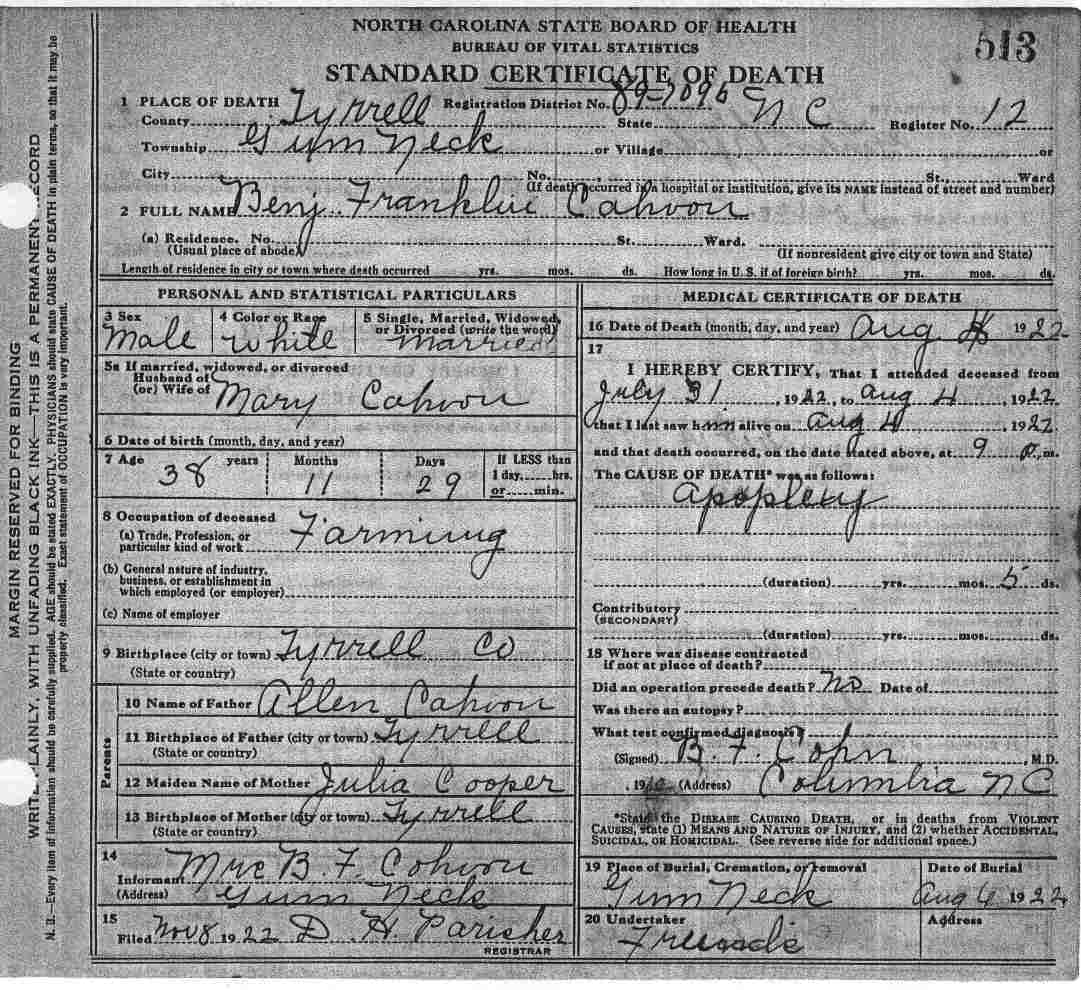 NORTH CAROLINA STATE BOARD OF HEALTH
BUREAU OF VITAL STATISTICS
513
STANDARD CERTIFICATE OF DEATH
1 PLACE OF DEATH Registration District No. 89-7096
County Tyrrell State N C Register No. 12
Township Gum Neck or Village or
City No. St., Ward
(If death occurred in a hospital or institution, give its NAME instead of street and number)
2 FULL NAME Benj. Franklin Cahoon
(a) Residence. No. St. Ward.
(Usual place of abode) (If nonresident give city or town and State)
Length of residence in city or town where death occurred yrs. mos. ds. How long in U.S. if of foreign birth? yrs. mos. ds.
PERSONAL AND STATISTICAL PARTICULARS
3 Sex 4 Color or Race 5 Single, Married, Widowed, or Divorced (write the word)
Male White Married
5a If married, widowed, or divorced
Husband of
(or) Wife of Mary Cahoon
6 Date of birth (month, day, and year)
7 Age 38 years Months 11 Days 29 If LESS than
1 day, hrs.
or min.
8 Occupation of deceased
(a) Trade, Profession, or
particular kind of work Farming
(b) General nature of industry,
business, or establishment in
which employed (or employer)
(c) Name of employer
9 Birthplace (city or town) Tyrrell Co
(State or country)
Parents
10 Name of Father Allen Cahoon
11 Birthplace of Father (city or town) Tyrrell
(State or country)
12 Maiden Name of Mother Julia Cooper
13 Birthplace of Mother (city or town) Tyrrell
(State or country)
14
Informant Mrs B. F. Cohoon
(Address) Gum Neck
15
Filed Nov 8 1922 D. H. Parisher
REGISTRAR
MEDICAL CERTIFICATE OF DEATH
16 Date of Death (month, day, and year) Aug 1922
17
I HEREBY CERTIFY, That I attended deceased from
July 31, 1922, to Aug 4, 1922
that I last saw him alive on Aug 4, 1922
and that death occurred, on the date stated above, at 9 p. m.
The CAUSE OF DEATH* was as follows:
Apoplexy
(duration) yrs. mos. 5 ds.
Contributory
(SECONDARY)
(duration) yrs. mos. ds.
18 Where was disease contracted
if not at place of death?
Did an operation precede death? No Date of
Was there an autopsy?
What test confirmed diagnosis?
(Signed) B. F. Cohn, M.D.
, 19 (Address) Columbia N C
*State the DISEASE CAUSING DEATH, or in deaths from VIOLENT
CAUSES, state (1) MEANS AND NATURE OF INJURY, and (2) whether ACCIDENTAL,
SUICIDAL, OR HOMICIDAL. (See reverse side for additional space.)
19 Place of Burial, Cremation, or removal Date of Burial
Gum Neck Aug 4 1922
20 Undertaker Address
MARGIN RESERVED FOR BINDING
WRITE PLAINLY, WITH UNFADING BLACK INK—THIS IS A PERMANENT RECORD
N. B.—Every item of information should be carefully supplied. AGE should be stated EXACTLY. PHYSICIANS should state CAUSE OF DEATH in plain terms, so that it may be
properly classified. Exact statement of OCCUPATION is very important.